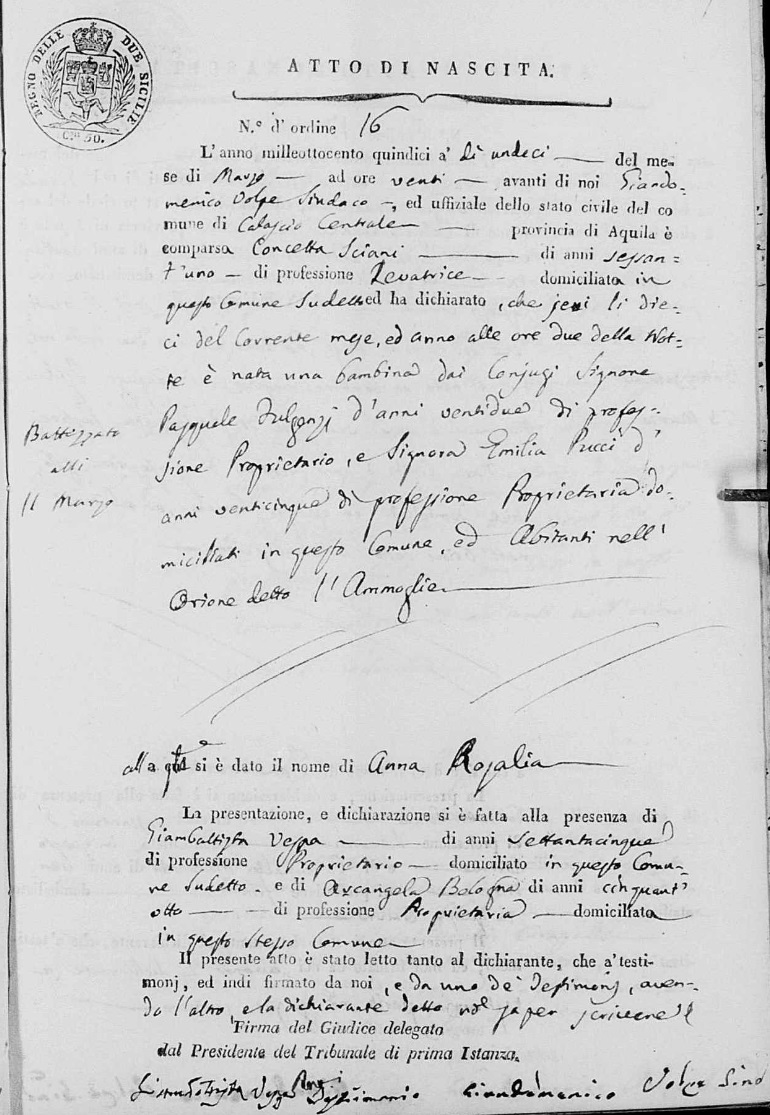 REGNO DELLE DUE SICILIE
C.mi 30.
ATTO DI NASCITA.
N.o d'ordine 16
L'anno milleottocento quindici a' dì undeci del me-
se di Marzo ad ore venti avanti di noi Giando-
menico Volpe Sindaco, ed uffiziale dello stato civile del co
mune di Calascio Centrale provincia di Aquila è
comparsa Concetta Sciani di anni sessan-
t'uno di professione Levatrice domiciliata in
questo Comune Sudetto ed ha dichiarato, che jeri li die-
ci del Corrente mese, ed anno alle ore due della Not-
te è nata una bambina dai Conjugi Signore
Pasquale Fulgenzj d'anni ventidue di profes-
sione Proprietario, e Signora Emilia Pucci d'
anni venticinque di professione Proprietaria do-
miciliati in questo Comune, ed Abitanti nell'
Orione detto l'Ammoglie
Battezzato
alli
11 Marzo
alla quale si è dato il nome di Anna Rosalia
La presentazione, e dichiarazione si è fatta alla presenza di
Giambattista Vespa di anni Settantacinque
di professione Proprietario domiciliato in questo Comu-
ne Sudetto e di Arcangela Bologna di anni cinquant'
otto di professione Proprietaria domiciliata
in questo stesso Comune
Il presente atto è stato letto tanto al dichiarante, che a' testi-
monj, ed indi firmato da noi, e da uno de' Testimonj, aven-
do l'altro, e la dichiarante detto non saper scrivere
Firma del Giudice delegato
dal Presidente del Tribunale di prima Istanza.
Vespa Testimonio Giandomenico Volpe Sind